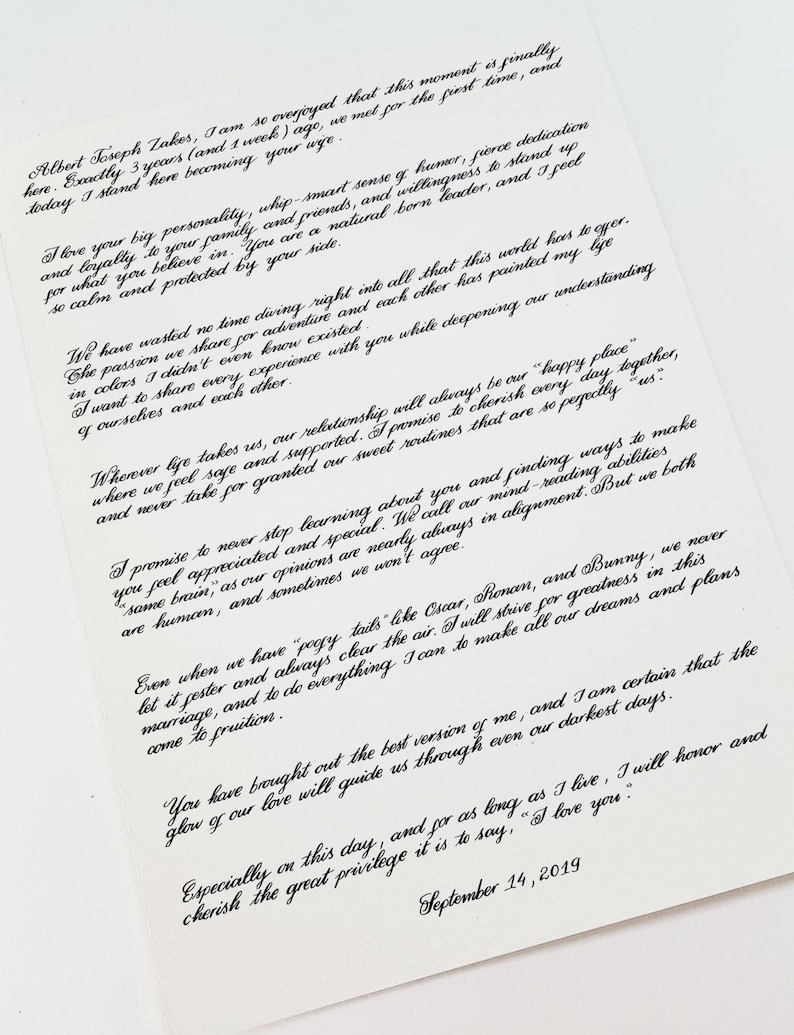 Albert Joseph Zakes, I am so overjoyed that this moment is finally
here. Exactly 3 years (and 1 week) ago, we met for the first time, and
today I stand here becoming your wife.
I love your big personality, whip-smart sense of humor, fierce dedication
and loyalty to your family and friends, and willingness to stand up
for what you believe in. You are a natural born leader, and I feel
so calm and protected by your side.
We have wasted no time diving right into all that this world has to offer.
The passion we share for adventure and each other has painted my life
in colors I didn't even know existed.
I want to share every experience with you while deepening our understanding
of ourselves and each other.
Wherever life takes us, our relationship will always be our "happy place"
where we feel safe and supported. I promise to cherish every day together,
and never take for granted our sweet routines that are so perfectly "us".
I promise to never stop learning about you and finding ways to make
you feel appreciated and special. We call our mind-reading abilities
"same brain," as our opinions are nearly always in alignment. But we both
are human, and sometimes we won't agree.
Even when we have "poofy tails" like Oscar, Ronan, and Bunny, we never
let it fester and always clear the air. I will strive for greatness in this
marriage, and to do everything I can to make all our dreams and plans
come to fruition.
You have brought out the best version of me, and I am certain that the
glow of our love will guide us through even our darkest days.
Especially on this day, and for as long as I live, I will honor and
cherish the great privilege it is to say, "I love you".
September 14, 2019